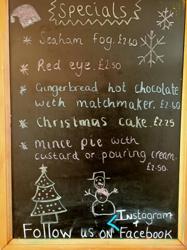 Specials
Seaham fog. £2.60
Red eye. £2.50.
Gingerbread hot chocolate
with matchmaker. £2.60
Christmas cake. £2.75
mince pie with
custard or pouring cream.
£2.50.
Instagram
+
Follow us on Facebook